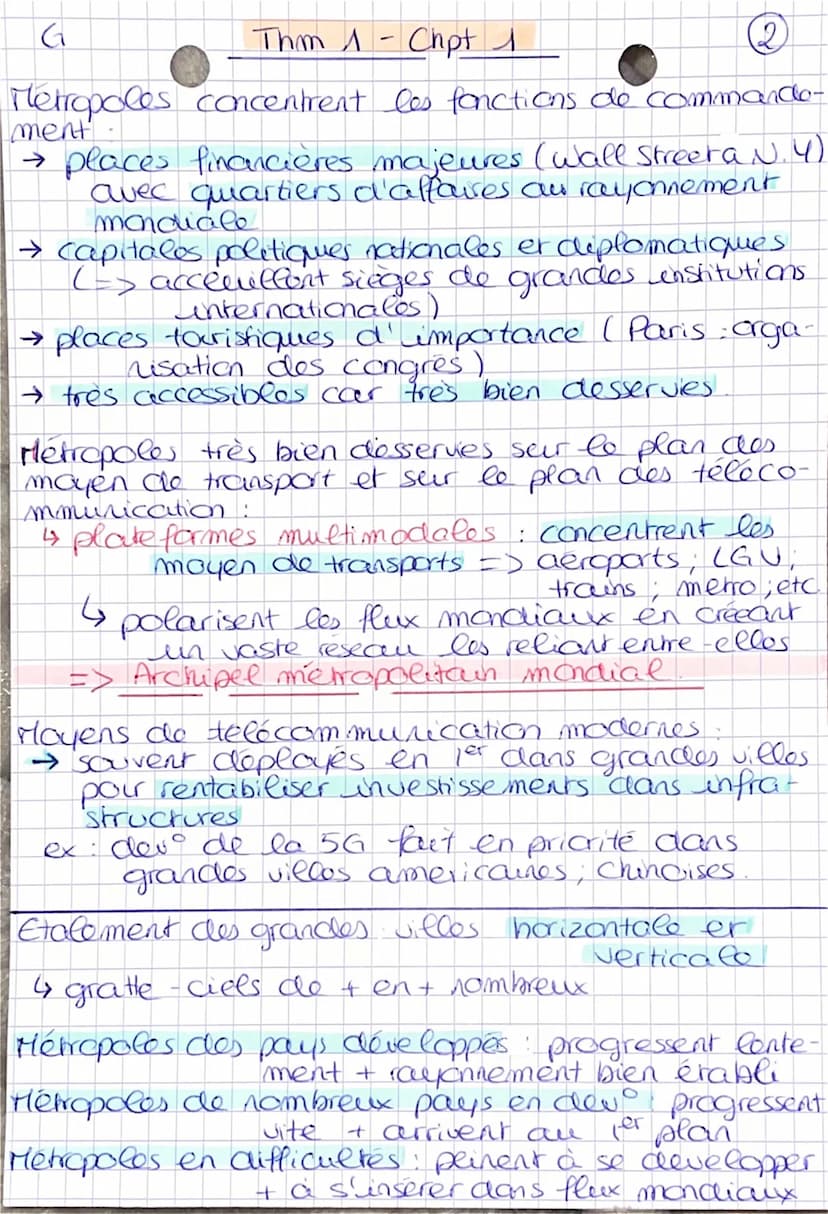 G Thm 1 - Chpt 1 2
Métropoles concentrent les fonctions de commande-
ment :
→ places financières majeures (Wall Street à N.Y)
avec quartiers d'affaires au rayonnement
mondiale
→ capitales politiques nationales et diplomatiques
(=> acceuillent sièges de grandes institutions
internationales)
→ places touristiques d'importance (Paris : orga-
nisation des congrès)
→ très accessibles car très bien desservies.
Métropoles très bien desservies sur le plan des
moyen de transport et sur le plan des téléco-
mmunication :
↳ plateformes multimodales : concentrent les
moyen de transports => aéroports ; LGV ;
trains ; métro ; etc
↳ polarisent les flux mondiaux en créeant
un vaste réseau les reliant entre-elles
=> Archipel métropolitain mondial.
Moyens de télécommunication modernes :
→ souvent déployés en 1er dans grandes villes
pour rentabiliser investissements dans infra-
structures
ex : dev° de la 5G fait en priorité dans
grandes villes américaines ; chinoises.
Etalement des grandes villes horizontale et
verticale
↳ gratte-ciels de + en + nombreux
Métropoles des pays développés : progressent lente-
ment + rayonnement bien établi
Métropoles de nombreux pays en dev° : progressent
vite + arrivent au 1er plan
Métropoles en difficultés : peinent à se développer
+ à s'insérer dans flux mondiaux